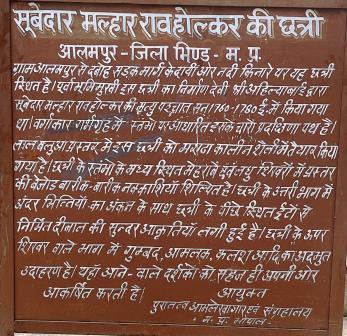 सूबेदार मल्हार राव होल्कर की छत्री
आलमपुर - जिला भिण्ड - म. प्र.
ग्राम आलमपुर से दबोह सड़क मार्ग के दायी ओर नदी किनारे पर यह छत्री
स्थित है। पूर्वाभिमुखी इस छत्री का निर्माण देवी श्री अहिल्या बाई द्वारा
सूबेदार मल्हार राव होल्कर की मृत्यु पश्चात सन् 1760-1780 ई. में किया गया
था। वर्गाकार गर्भगृह में स्तंभो पर आधारित इसके चारो प्रदक्षिणा पथ है।
लाल बलुआ प्रस्तर में इस छत्री को मराठा कालीन शैली में तैयार किया
गया है। छत्री के स्तंभो के मध्य स्थित मेहराबें एवं लघु शिखरों में प्रस्तर
की बेजोड़ बारीक-बारीक नक्काशियाँ शिल्पित है। छत्री के उत्तरी भाग में
अंदर भित्तियों का अंकन के साथ छत्री के पीछे स्थित ईटों से
निर्मित दीवाल की सुन्दर आकृतियाँ लगी हुई है। छत्री के ऊपर
शिखर वाले भाग में गुम्बद, आमलक, कलश आदि का अद्भुत
उदाहरण है। यहां आने-वाले दर्शकों को सहज ही अपनी ओर
आकर्षित करती है।
आयुक्त
पुरातत्व अभिलेखागार एवं संग्रहालय
म. प्र. भोपाल